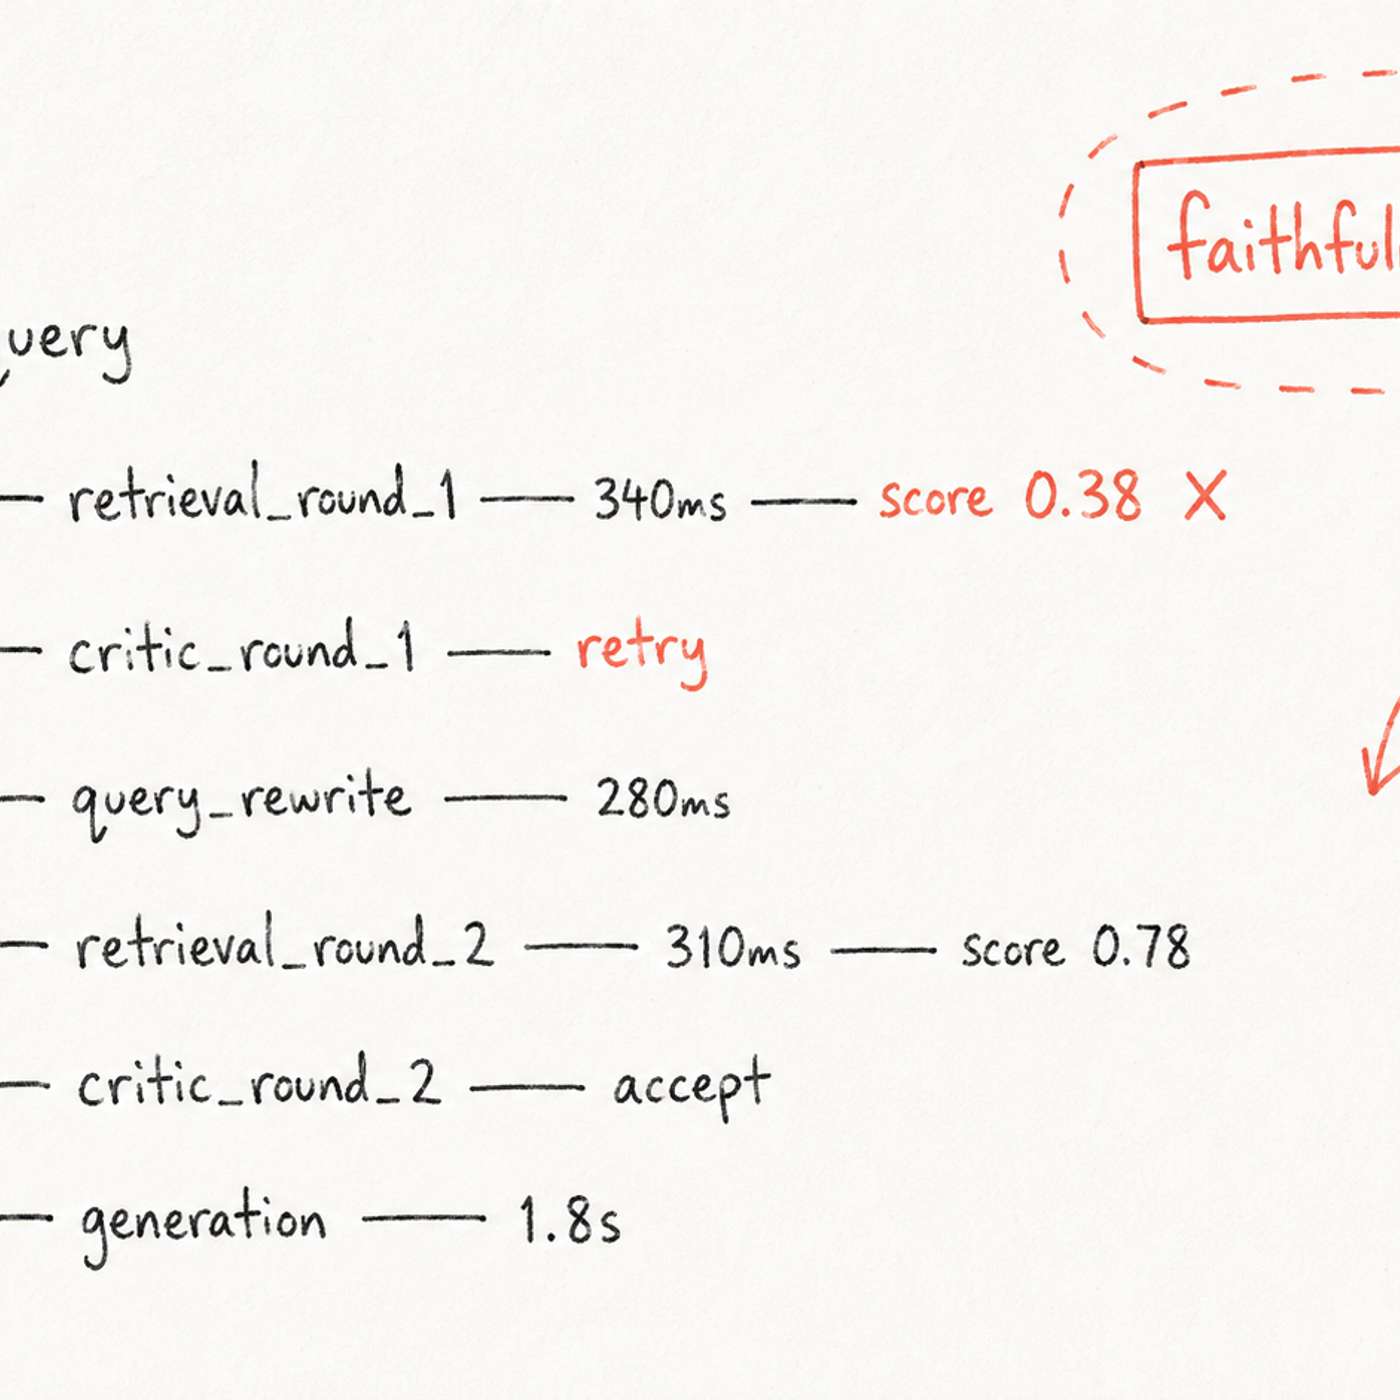 faithful
uery
retrieval_round_1 — 340ms — score 0.38 X
critic_round_1 — retry
query_rewrite — 280ms
retrieval_round_2 — 310ms — score 0.78
critic_round_2 — accept
generation — 1.8s